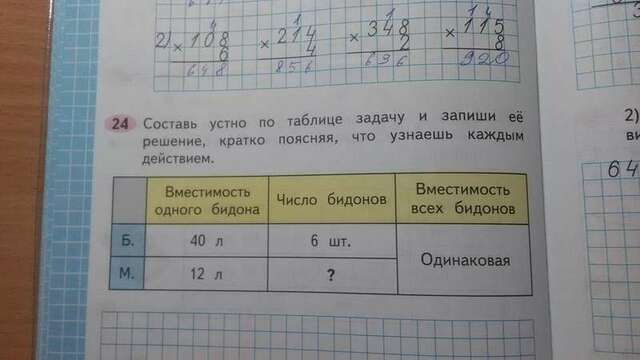 2) ×108 ×214 ×348 ×115
6 4 2 8
648 856 696 920
24 Составь устно по таблице задачу и запиши её
решение, кратко поясняя, что узнаешь каждым
действием.
Вместимость одного бидона Число бидонов Вместимость всех бидонов
Б. 40 л 6 шт. Одинаковая
М. 12 л ?
2)
ви
64